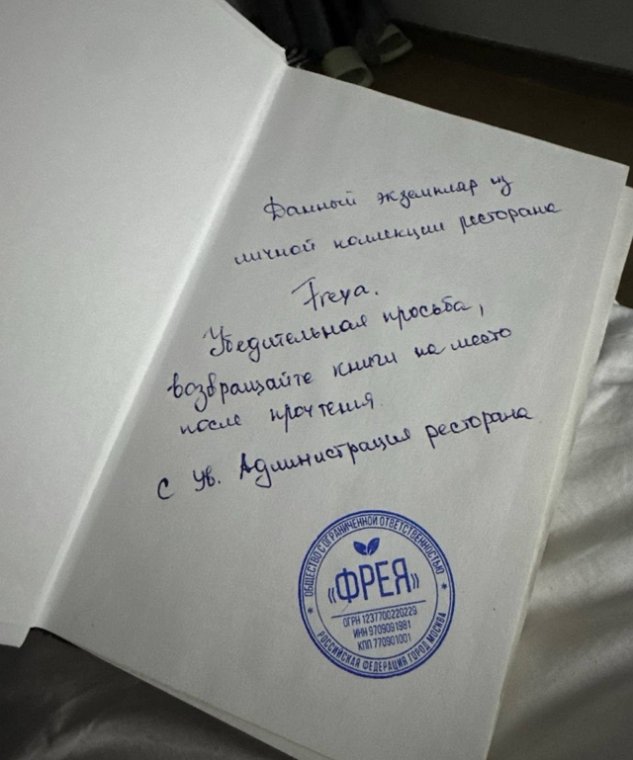 Данный экземпляр из
личной коллекции ресторана
Freya.
Убедительная просьба,
возвращайте книги на место
после прочтения.
С Ув. Администрация ресторана
ОБЩЕСТВО С ОГРАНИЧЕННОЙ ОТВЕТСТВЕННОСТЬЮ
«ФРЕЯ»
ОГРН 1237700220229
ИНН 9709091981
КПП 770901001
РОССИЙСКАЯ ФЕДЕРАЦИЯ ГОРОД МОСКВА